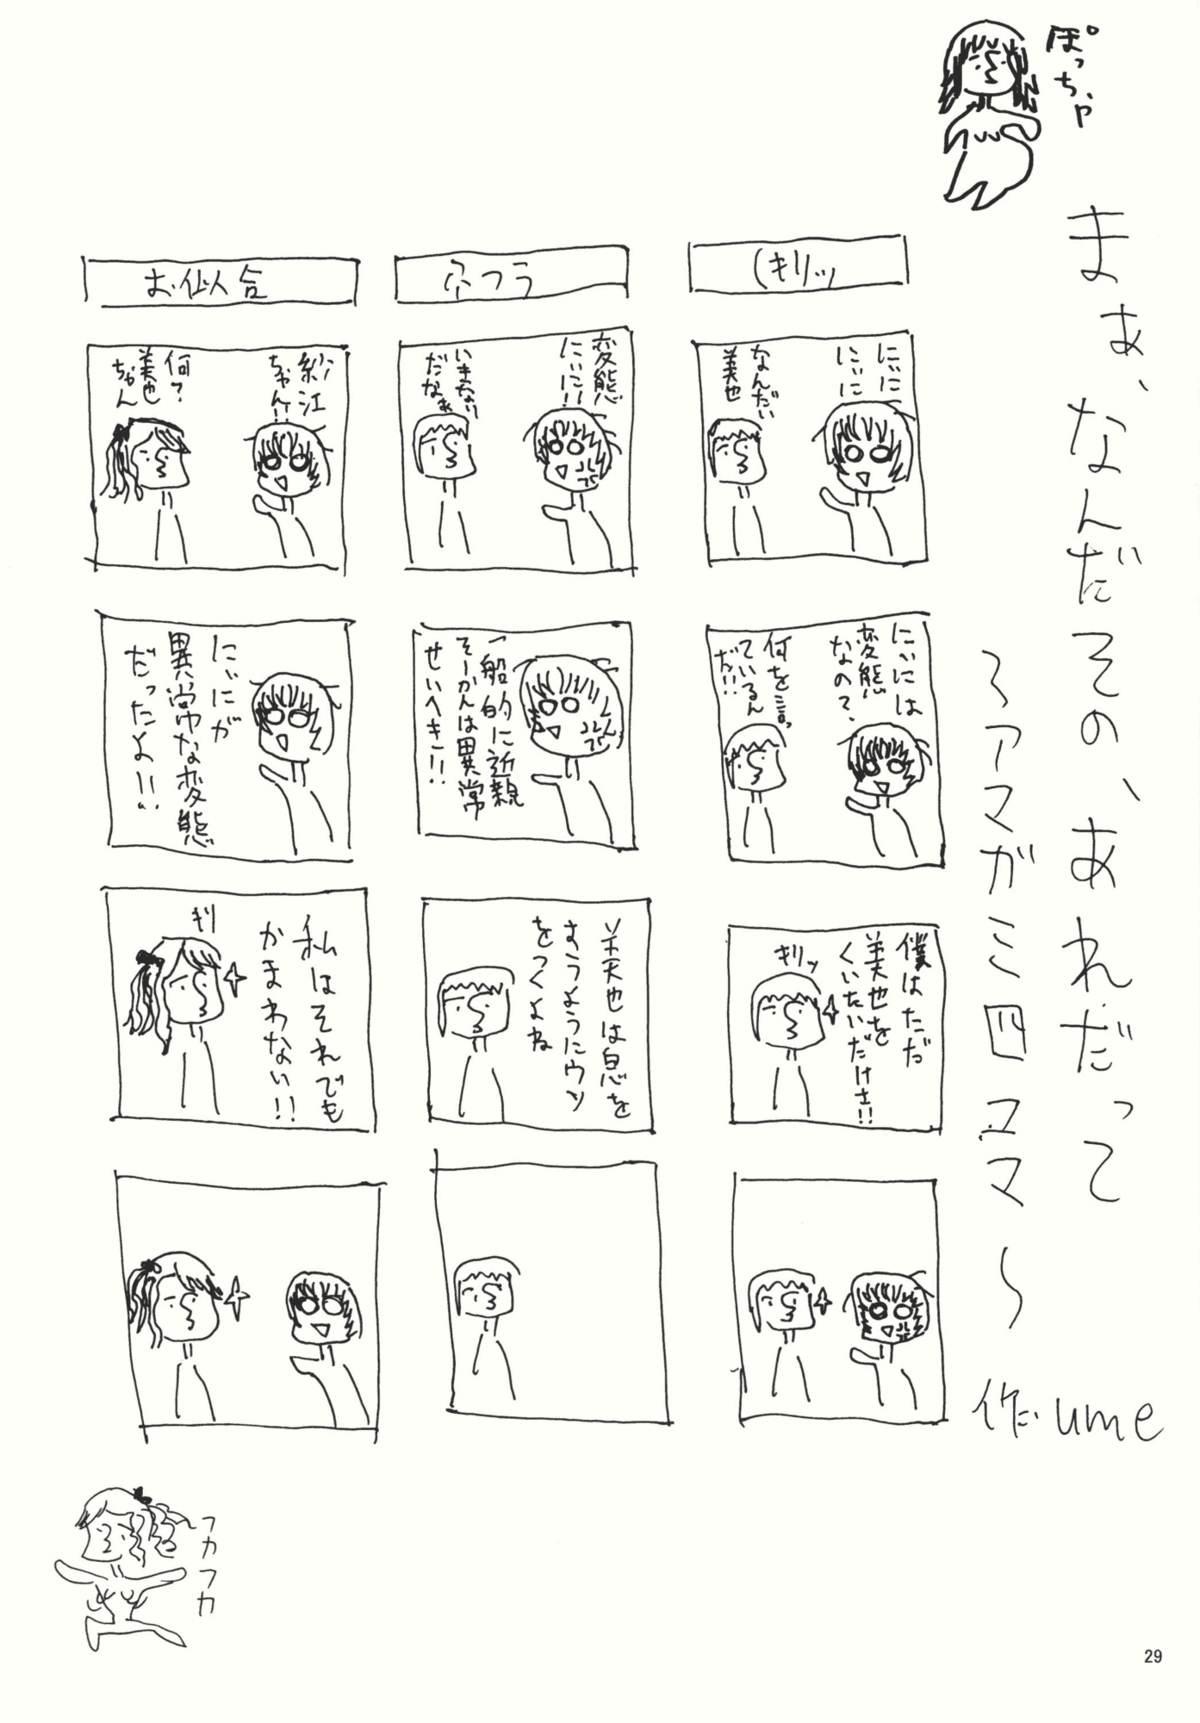 ぽっちゃ
まぁ、なんだその、あれだって
～アマガミ四コマ～
作 ume
(キリッ
にぃに
にぃに
なんだい
美也
にぃには
変態
なの?
何を言っ
ているん
だ!!
僕はただ
美也を
くいたいだけさ!!
キリッ
変態
にぃに!!
いきなり
だなぁ
一般的に近親
そーかんは異常
せいへき!!
美也は息を
すうようにウソ
をつくよね
お似合
紗江
ちゃん!!
何?
美也
ちゃん
にぃにが
異常な変態
だったよ!!
私はそれでも
かまわない!!
キリ
フカフカ
29